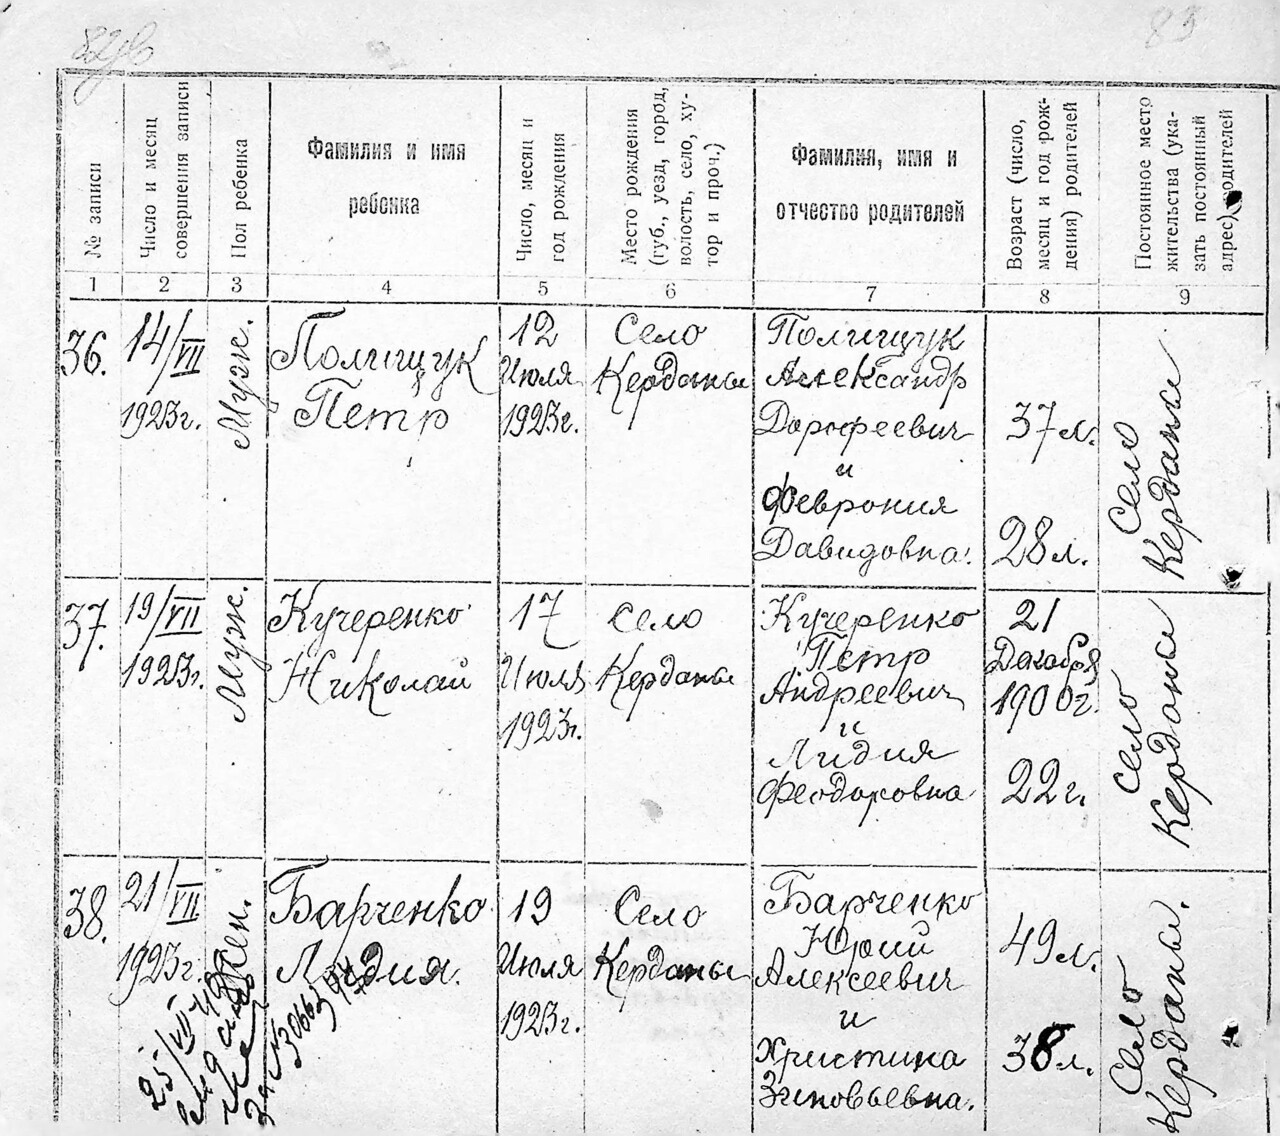 83
№ записи
Число и месяц
совершения записи
Пол ребенка
Фамилия и имя
ребенка
Число, месяц и
год рождения
Место рождения
(губ., уезд, город,
волость, село, ху-
тор и проч.)
Фамилия, имя и
отчество родителей
Возраст (число,
месяц и год рож-
дения) родителей
Постоянное место
жительства (ука-
зать постоянный
адрес) родителей
1 2 3 4 5 6 7 8 9
36.
14/VII
1923г.
Муж.
Полищук
Петр
12
Июля
1923г.
Село
Керданы
Полищук
Александр
Дорофеевич
и
Феврония
Давидовна.
37 л.
28 л.
Село
Керданы
37.
19/VII
1923г.
Муж.
Кучеренко
Николай
17
Июля
1923г.
село
Керданы
Кучеренко
Петр
Андреевич
и
Лидия
Феодоровна
21
Декабря
1900г.
22 г.
село
Керданы
38.
21/VII
1923г.
Жен.
Барченко
Лидия.
19
Июля
1923г.
Село
Керданы
Барченко
Юрий
Алексеевич
и
Христина
Зиновьевна.
49 л.
38 л.
Село
Керданы.
25/VII